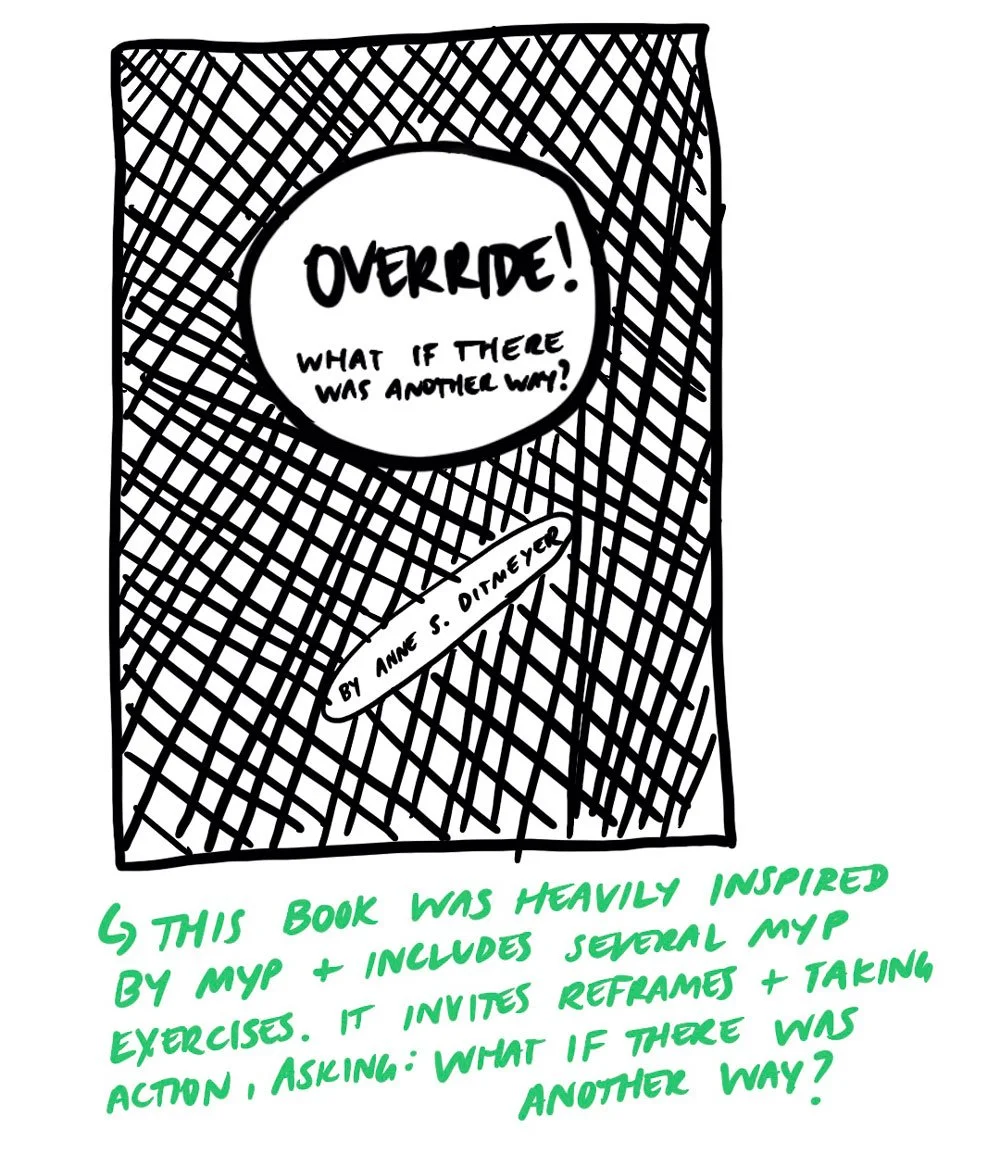 OVERRIDE!
WHAT IF THERE
WAS ANOTHER WAY?
BY ANNE S. DITMEYER
↳ THIS BOOK WAS HEAVILY INSPIRED
BY MYP + INCLUDES SEVERAL MYP
EXERCISES. IT INVITES REFRAMES + TAKING
ACTION, ASKING: WHAT IF THERE WAS
ANOTHER WAY?